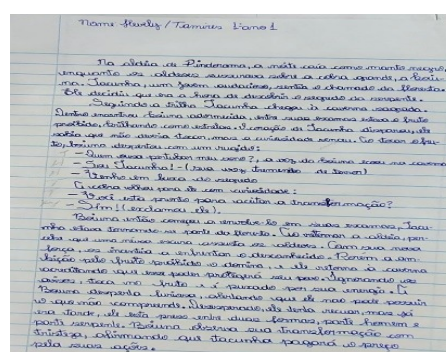 Nome Hevely / Tamires 1ºano 1
Na aldeia de Pindorama, a noite caia como manto negro,
enquanto os aldeoes sussurava sobre a cobra grande, a boiu
na. Jacunha, um jovem audacioso, sentia o chamado da floresta.
Ele decidiu que era a hora de descobrir o segredo da serpente.
Seguindo a trilha Jacunha chegou à caverna sagrada.
Dentro encontrou boiuna adormecida, entre suas escamas estava o fruto
proibido, brilhando como estrelas. O coração de Jacunha disparou, ele
sabia que não deveria tocar, mas a curiosidade venceu. Ao tocar o fru-
to, boiuna despertou com um rugido:
– Quem ousa pertubar meu sono?, a voz da boiuna ecoou na caverna
– Sou Jacunha! – (sua voz tremendo de terror)
– Venho em busca do segredo
A cobra olhou para ele com curiosidade:
– Você está pronto para aceitar a transformação?
– Sim! (exclamou ele).
Boiuna então começou a envolve-lo em suas escamas, Jacu-
nha estava tornando se parte da floresta. Ao retornar a aldeia, per-
cebe que uma névoa escura assusta os aldeoes. Com sua nova
força, se incentiva a enfrentar o desconhecido. Porém a am-
bição pelo fruto proibido o domina, e ele retorna à caverna
acreditando que esse poder protegerá seu povo. Ignorando os
avisos, toca no fruto e é puxado por sua energia. A
Boiuna desperta furiosa, alertando que ele não pode possuir
o que não compreende. Desesperado, ele tenta recuar, mas já
era tarde, ele está preso entre duas formas, parte homem e
parte serpente. Boiuna observa sua transformação com
tristeza, afirmando que Jacunha pagará o preço
pela suas ações.